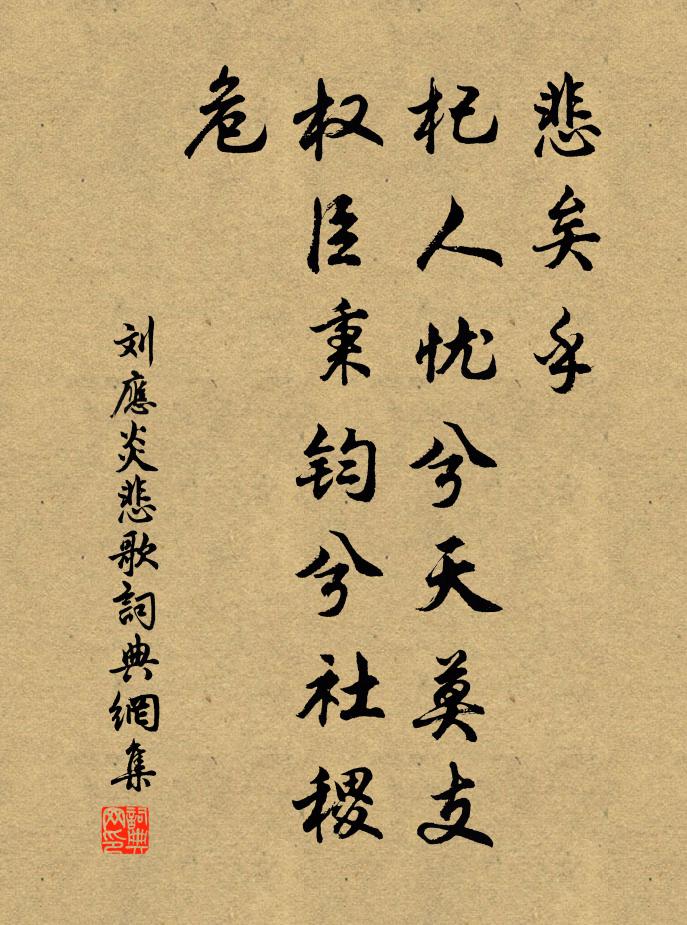 悲矣乎
杞人忧兮天莫支
权臣秉钧兮社稷
危
刘應炎悲歌詞典網集
詞典网印